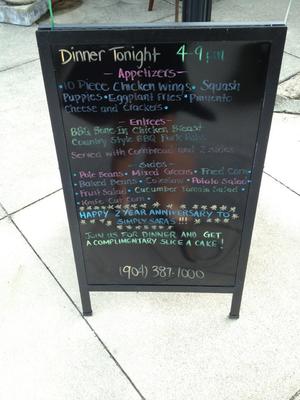 Dinner Tonight 4-9 pm
- Appetizers -
• 10 Piece Chicken Wings • Squash
Puppies • Eggplant Fries • Pimento
Cheese and Crackers •
- Entrees -
BBQ Bone In Chicken Breast
Country Style BBQ Pork Ribs
Served with Cornbread and 2 sides
- Sides -
• Pole Beans • Mixed Greens • Fried Corn
• Baked Beans • Coleslaw • Potato Salad
• Fruit Salad • Cucumber Tomato Salad •
• Knife Cut Corn •
HAPPY 2 YEAR ANNIVERSARY TO
SIMPLY SARAS !!!
JOIN US FOR DINNER AND GET
A COMPLIMENTARY SLICE A CAKE!
(904) 387-1000